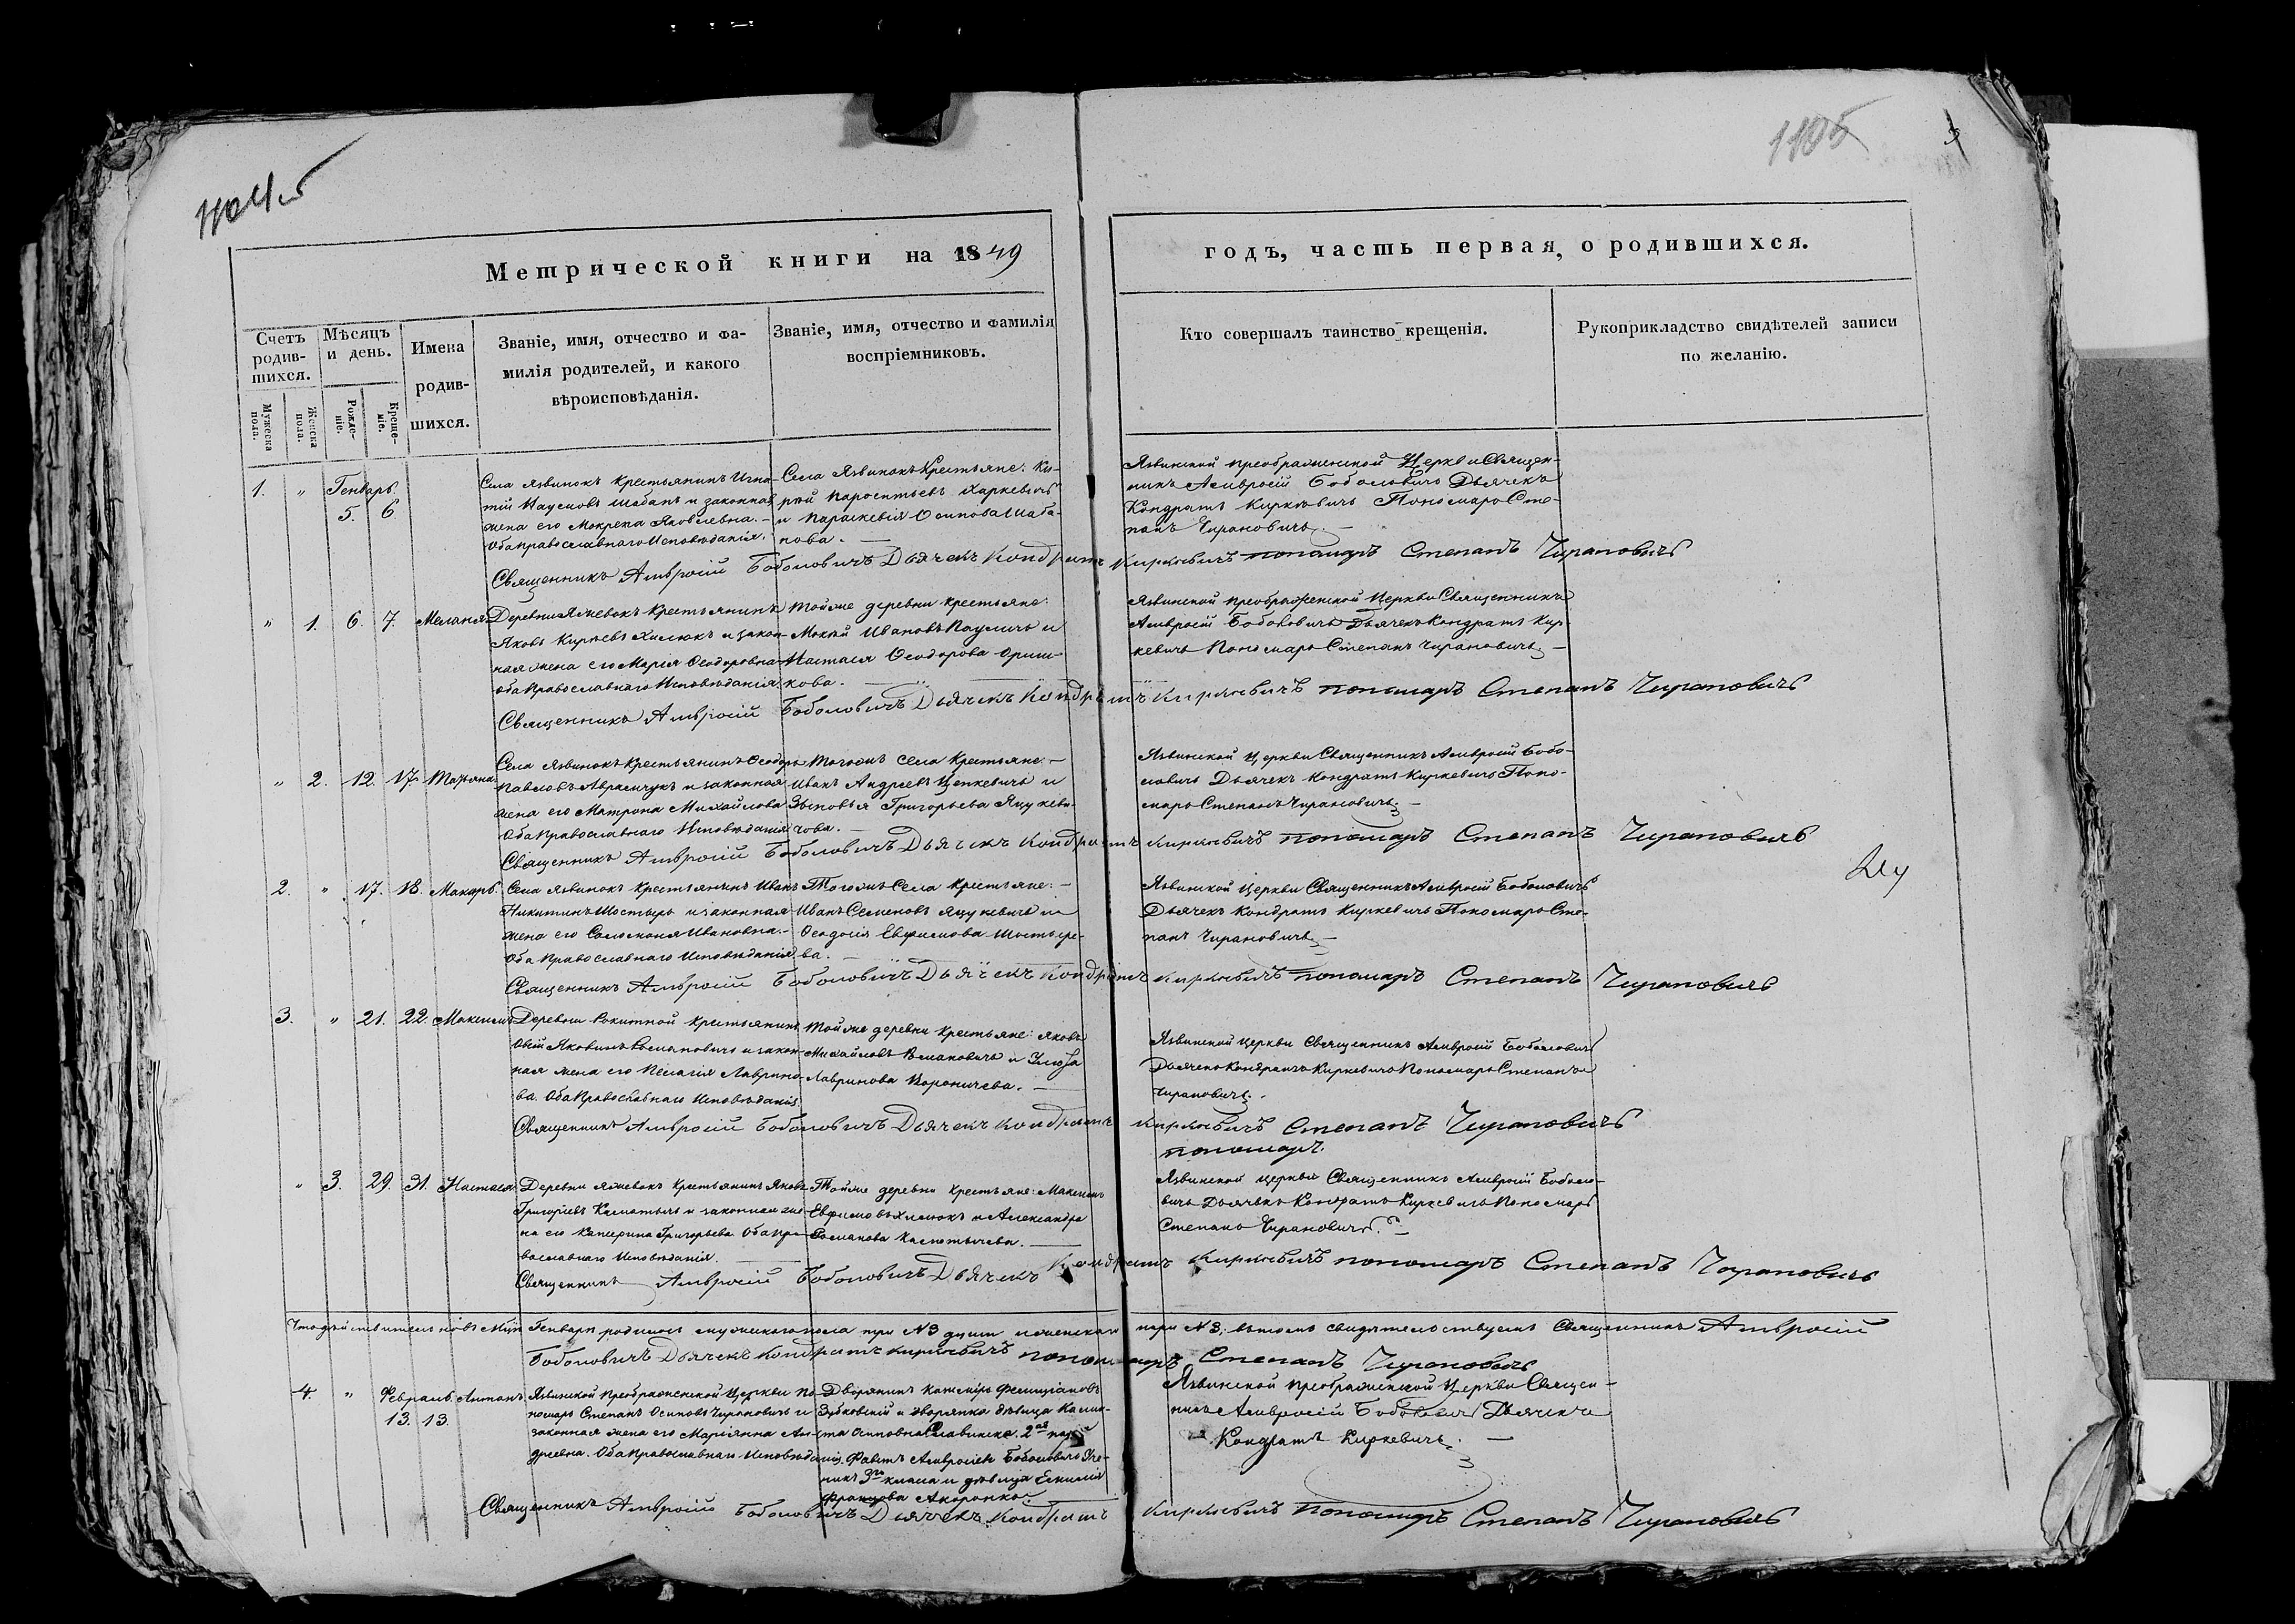 1105
Метрической книги на 1849
годъ, часть первая, о родившихся.
Счетъ родив-
шихся.
Мѣсяцъ
и день.
Имена
родив-
шихся.
Званіе, имя, отчество и фа-
милія родителей, и какого
вѣроисповѣданія.
Званіе, имя, отчество и фамилія
воспріемниковъ.
Кто совершалъ таинство крещенія.
Рукоприкладство свидѣтелей записи
по желанію.
Мужеска
пола.
Женска
пола.
Рожде-
ніе.
Креще-
ніе.
1. " Генварь
5. 6.
Села Язвинокъ Крестьянинъ Игна-
тій Наумовъ Шабанъ и законная
жена его Мокрена Яковлевна. —
Оба православнаго Исповѣданія.
Села Язвинокъ Крестьяне:
и Параскевія Осипова Шаба-
нова. —
Язвинской преображенской Церкви Священ-
никъ Амвросій Боболовичъ Дьячекъ
Кондратъ Киркевичъ Пономарь Сте-
панъ Чирановичъ. —
Священникъ Амвросій Боболовичъ Дьячекъ Кондратъ Киркевичъ пономарь Степанъ Чирановичъ
" 1. 6. 7. Меланія
Крестьянинъ
Яковъ Хилюкъ и закон-
ная жена его Марія Ѳеодоровна
оба Православнаго Исповѣданія
Тойже деревни крестьяне:
Ивановъ и
Настасія Ѳеодорова
кова. —
Язвинской преображенской Церкви Священникъ
Амвросій Боболовичъ Дьячекъ Кондратъ Кир-
кевичъ Пономарь Степанъ Чирановичъ. —
Священникъ Амвросій Боболовичъ Дьячекъ Кондратъ Киркевичъ пономарь Степанъ Чирановичъ
" 2. 12. 17. Татьяна
Села Язвинокъ Крестьянинъ Ѳеодоръ
Павловъ Аврамчукъ и законная
жена его Матрона Михайлова
Оба православнаго Исповѣданія
Тогожъ Села Крестьяне: —
Иванъ Андреевъ Ценкевичъ и
Зѣновья Григорьева Яцукеви-
чова. —
Язвинской Церкви Священникъ Амвросій Бобо-
ловичъ Дьячекъ Кондратъ Киркевичъ Поно-
марь Степанъ Чирановичъ. —
Священникъ Амвросій Боболовичъ Дьячекъ Кондратъ Киркевичъ пономарь Степанъ Чирановичъ
2. " 17. 18. Макаръ
Села Язвинокъ Крестьянинъ Иванъ
Никитинъ Шостырь и законная
жена его Соломонія Ивановна. —
Оба Православнаго Исповѣданія
Тогожъ Села Крестьяне: —
Иванъ Семеновъ Яцукевичъ и
Ѳеодосія Евфимова Шостыре-
ва. —
Язвинской Церкви Священникъ Амвросій Боболовичъ
Дьячекъ Кондратъ Киркевичъ Пономарь Сте-
панъ Чирановичъ. —
Священникъ Амвросій Боболовичъ Дьячекъ Кондратъ Киркевичъ пономарь Степанъ Чирановичъ
3. " 21. 22. Максимъ
Деревни Рокитной Крестьянинъ
и закон-
ная жена его Пелагія Лаврино-
ва. Оба Православнаго Исповѣданія
Тойже деревни Крестьяне: Яковъ
Михайловъ и
Лавринова Вороничева. —
Язвинской Церкви Священникъ Амвросій Боболовичъ
Дьячекъ Кондратъ Киркевичъ Пономарь Степанъ
Чирановичъ.
Священникъ Амвросій Боболовичъ Дьячекъ Кондратъ Киркевичъ Степанъ Чирановичъ
пономарь.
" 3. 29. 31. Настасія
Деревни Крестьянинъ Яковъ
Григорьевъ и законная же-
на его Катерина Григорьева Оба пра-
вославнаго Исповѣданія.
Тойже деревни Крестьяне: Максимъ
Евфимовъ Хилюкъ и Александра
Романова —
Язвинской Церкви Священникъ Амвросій Боболо-
вичъ Дьячекъ Кондратъ Киркевичъ Пономарь
Степанъ Чирановичъ. —
Священникъ Амвросій Боболовичъ Дьячекъ Кондратъ Киркевичъ пономарь Степанъ Чирановичъ
Генваря мужескаго пола три № 3 и женска три № 3; въ томъ свидѣтельствуемъ Священникъ Амвросій
Боболовичъ Дьячекъ Кондратъ Киркевичъ пономарь Степанъ Чирановичъ
4. " Февраль Антонъ
13. 13
Язвинской Преображенской Церкви По-
номарь Степанъ Осиповъ Чирановичъ и
законная жена его Маріянна Ан-
дреевна. Оба Православнаго Исповѣданія.
Дворянинъ
и дворянка дѣвица
Осиповна Славинска. 2ая пара
Амвросіевъ Боболовичъ Уче-
никъ 3го класса и дѣвица
Язвинской преображенской Церкви Священ-
никъ Амвросій Боболовичъ Дьячекъ
Кондратъ Киркевичъ. —
Священникъ Амвросій Боболовичъ Дьячекъ Кондратъ Киркевичъ пономарь Степанъ Чирановичъ